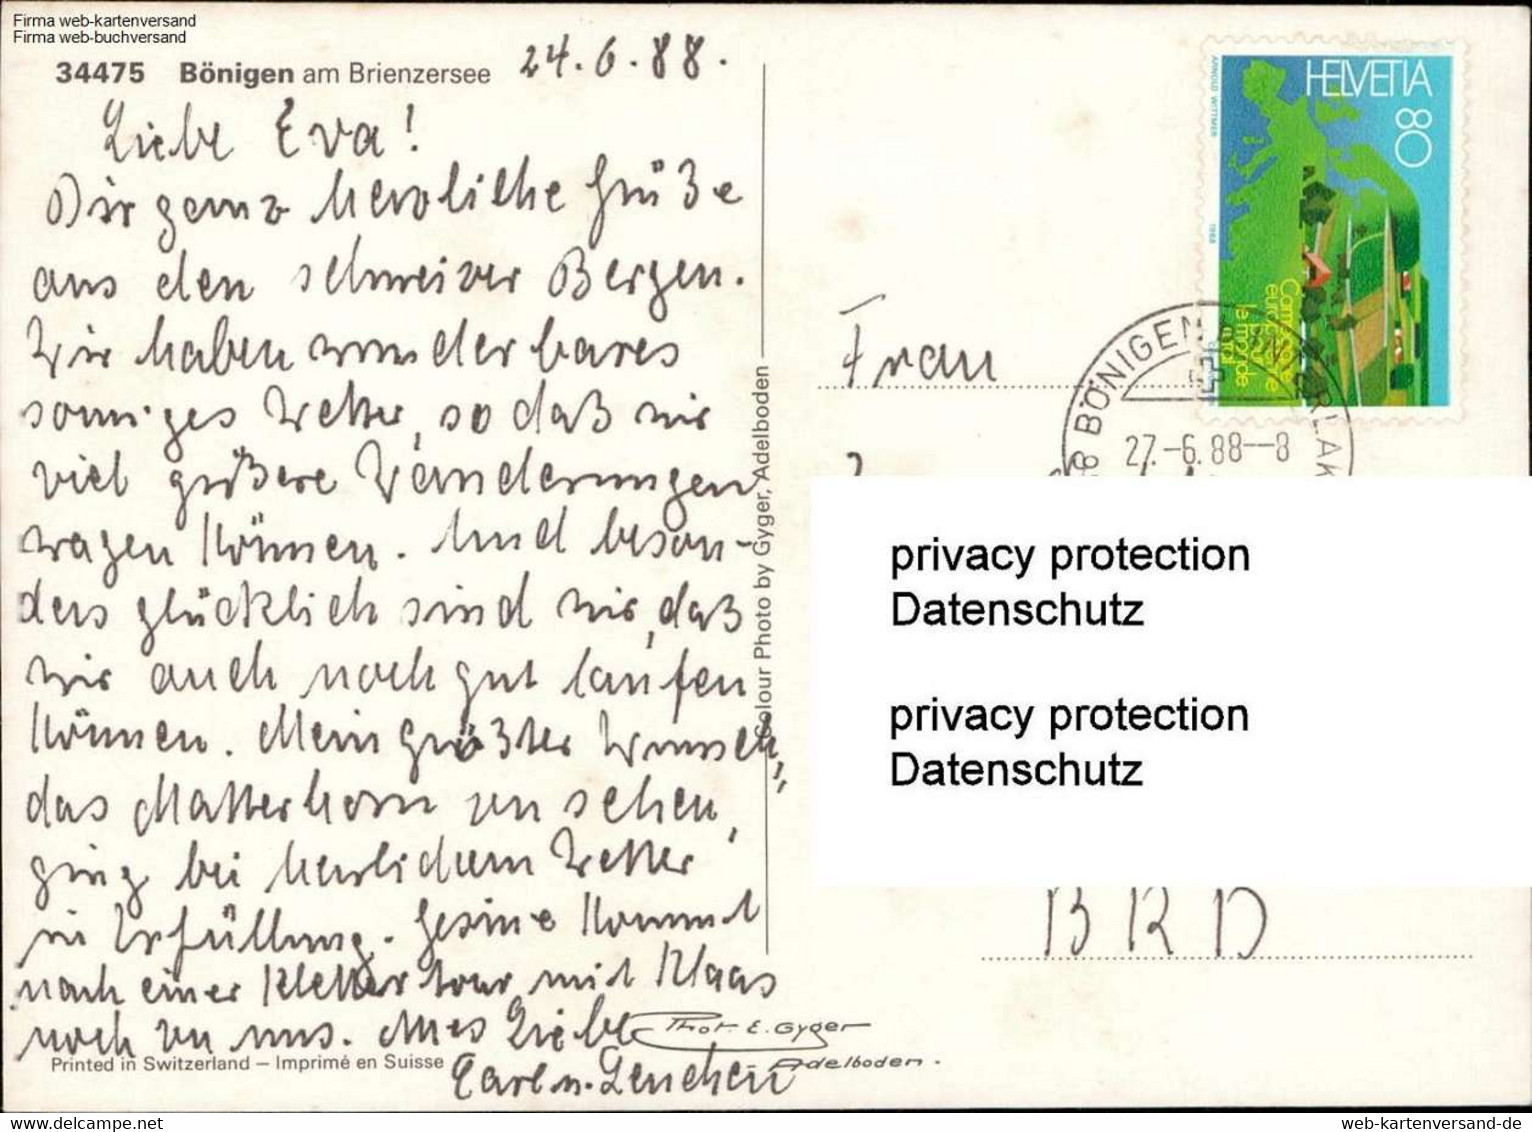 Firma web-kartenversand
Firma web-buchversand
34475 Bönigen am Brienzersee
24.6.88.
Liebe Eva!
Dir ganz herzliche Grüße
aus den schweizer Bergen.
Wir haben wunderbares
sonniges Wetter, so daß wir
viel größere Wanderungen
wagen können. Und beson-
ders glücklich sind wir, daß
wir auch noch gut laufen
können. Mein größter Wunsch,
das Matterhorn zu sehen,
ging bei herrlichem Wetter
in Erfüllung. Gesine kommt
nach einer Klettertour mit Klaas
noch zu uns. Alles Liebe
Carl u. Lenchen
Printed in Switzerland – Imprimé en Suisse
Phot. E. Gyger
Adelboden.
Colour Photo by Gyger, Adelboden
HELVETIA
80
ARNOLD WITTMER
1988
Campagne
européenne
pour
le monde
rural
BÖNIGEN
27.-6.88--8
Frau
privacy protection
Datenschutz
privacy protection
Datenschutz
BRD
www.delcampe.net
web-kartenversand-de